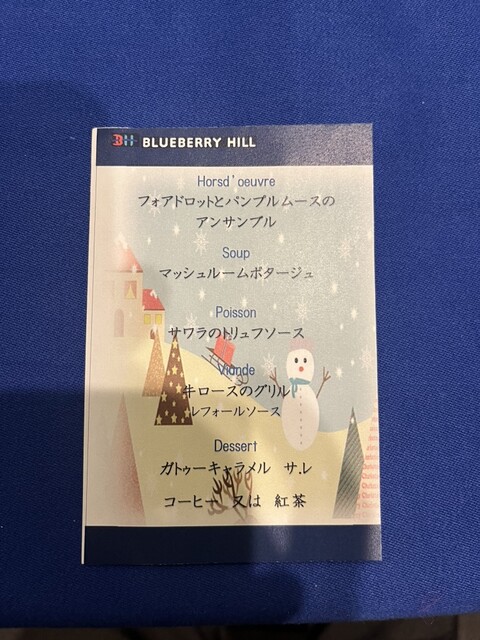 BH BLUEBERRY HILL
Horsd'oeuvre
フォアドロットとパンプルムースの
アンサンブル
Soup
マッシュルームポタージュ
Poisson
サワラのトリュフソース
Viande
牛ロースのグリル
レフォールソース
Dessert
ガトゥーキャラメル サ.レ
コーヒー 又は 紅茶